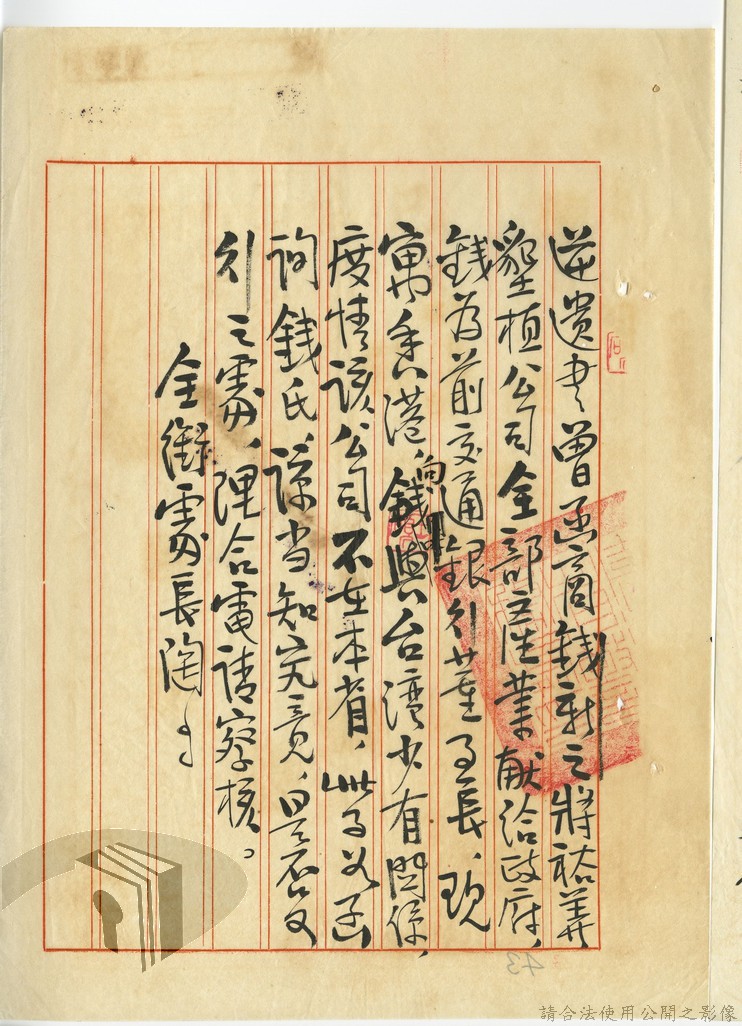 逆遺書曾函商錢新之將裕華
墾植公司全部產業献給政府、
錢为前交通銀行董事長、現
寓香港、錢向與台湾少有関係、
度情該公司不在本省、此事必函
詢錢氏、諒当知究竟、是否可
行之處、理合電請察核。
全銜處長陶
43
請合法使用公開之影像